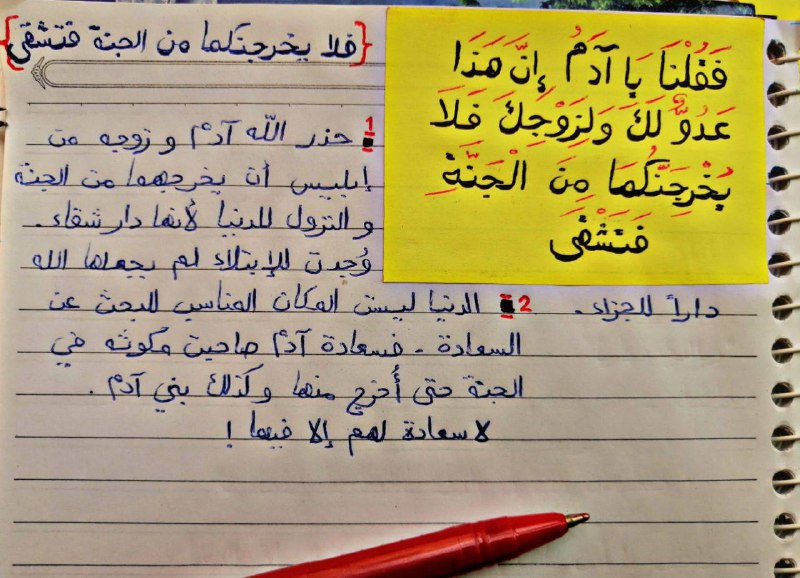 {فلا يخرجنكما من الجنة فتشقى}
فَقُلْنَا يَا آدَمُ إِنَّ هَذَا
عَدُوٌّ لَكَ وَلِزَوْجِكَ فَلَا
يُخْرِجَنَّكُمَا مِنَ الْجَنَّةِ
فَتَشْقَى
1 حذر الله آدم و زوجه من
إبليس أن يخرجهما من الجنة
و النزول للدنيا لأنها دار شقاء.
وُجدت للإبتلاء لم يجعلها الله
داراً للجزاء.
2 الدنيا ليست المكان المناسب للبحث عن
السعادة. فسعادة آدم صاحبت مكوثه في
الجنة حتى أُخرج منها وكذلك بني آدم.
لا سعادة لهم إلا فيها!